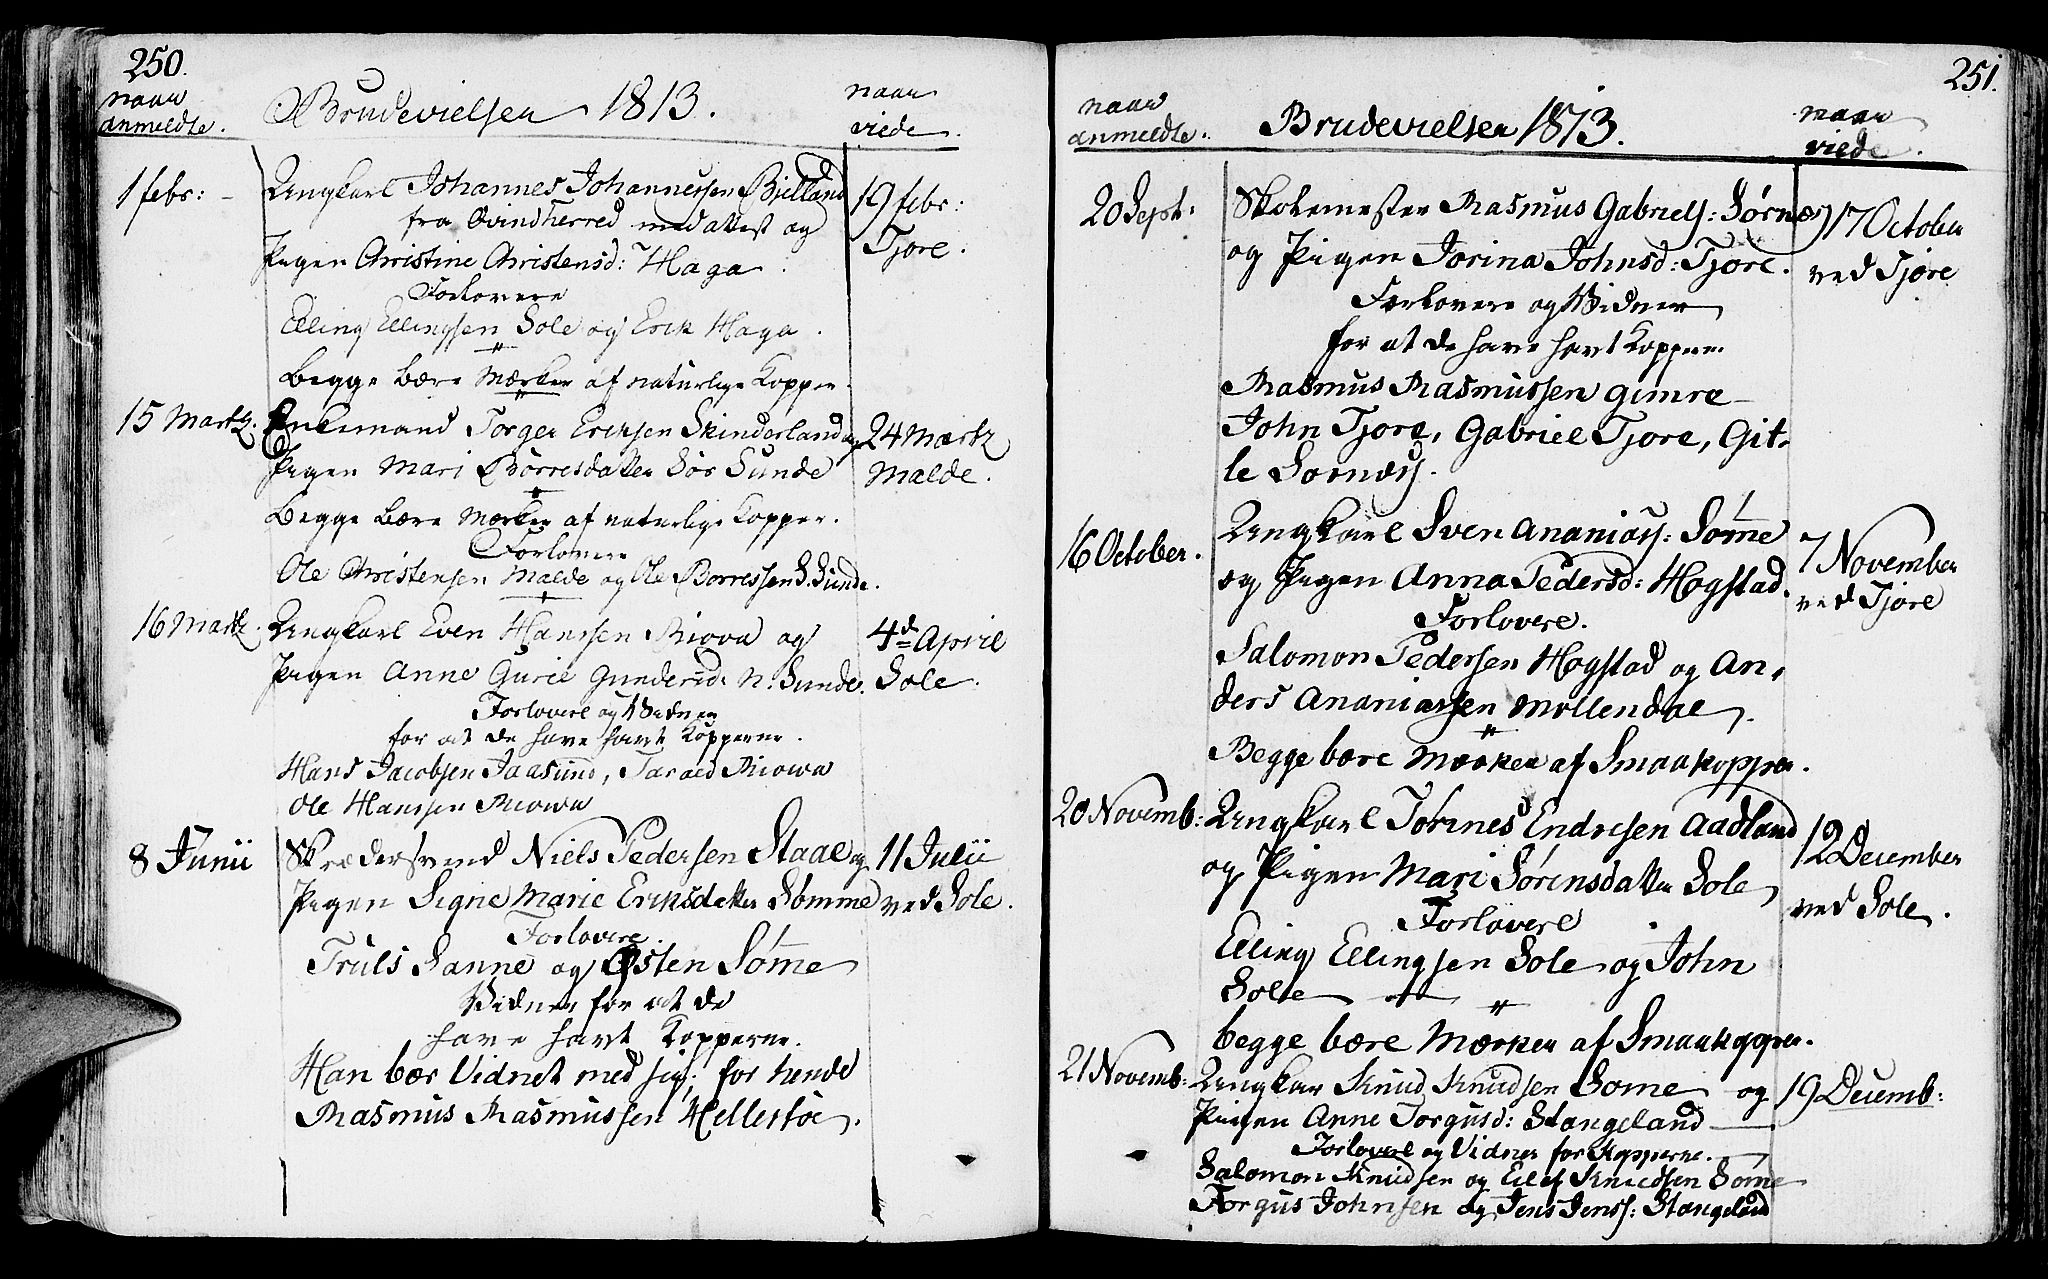 250.
naar
anmeldte.
Brudevielser 1813.
naar
viede.
1 febr: -
Ungkarl Johannes Johannessen Bielland
fra Qvindherred med attest og
Pigen Christine Christensd: Haga.
Forlovere
Elling Ellingsen Sole og Erik Haga.
Begge bære Mærker af naturlige Kopper.
19 febr:
Tjore.
15 Martz.
Enkemand Torger Eriksen Skinderland og
Pigen Mari Børresdatter Sør Sunde
Begge bære Mærker af naturlige Kopper.
Forlovere
Ole Christensen Malde og Ole Borressen S. Sunde.
24 Martz
Malde.
16 Martz.
Ungkarl Even Hanssen Riova og
Pigen Anne Gurie Gundersd: N. Sunde.
Forlovere og Vidner
for at de have havt Kopperne.
Hans Jacobsen Jaasund, Tarald Riowa
Ole Hanssen Riowa
4d April
Sole.
8 Junii
Skrædersvend Niels Pedersen Staae og
Pigen Signe Marie Eriksdatter Sömme
Forlovere.
Truls Sanne og Østen Sømme
Vidner for at de
have havt Kopperne.
Han bær Vidnet med sig, for hende
Rasmus Rasmussen Hellestøe.
11 Julii
ved Sole.
251.
naar
anmeldte.
Brudevielser 1813.
naar
viede.
20 Sept:
Skolemester Rasmus Gabriels: Sørnæs
og Pigen Jorina Johnsd: Tjore.
Forlovere og Vidner
for at de have havt Kopperne
Rasmus Rasmussen Gimre
John Tjore, Gabriel Tjore, Git-
le Sornæss.
17 October
ved Tjore
16 October.
Ungkarl Sven Ananiass: Sømme
og Pigen Anna Pedersd: Hogstad.
Forlovere.
Salomon Pedersen Hogstad og An-
ders Ananiassen Møllendal.
Begge bære Mærker af Smaakopper.
7 November
ved Tjore
20 Novemb:
Ungkarl Torines Endresen Aadland
og Pigen Mari Sørensdatter Sole
Forlovere
Elling Ellingsen Sole og John
Sole
begge bære Mærker af Smaakopper.
12 December
ved Sole.
21 Novemb:
Ungkar Knud Knudsen Some og
Pigen Anne Torgusd: Stangeland
Forlovere og Vidner for Kopperne.
Salomon Knudsen og Eilef Knudsen Sóme
Torgus Johnsen og Jens Jenss: Stangeland
19 Decemb: